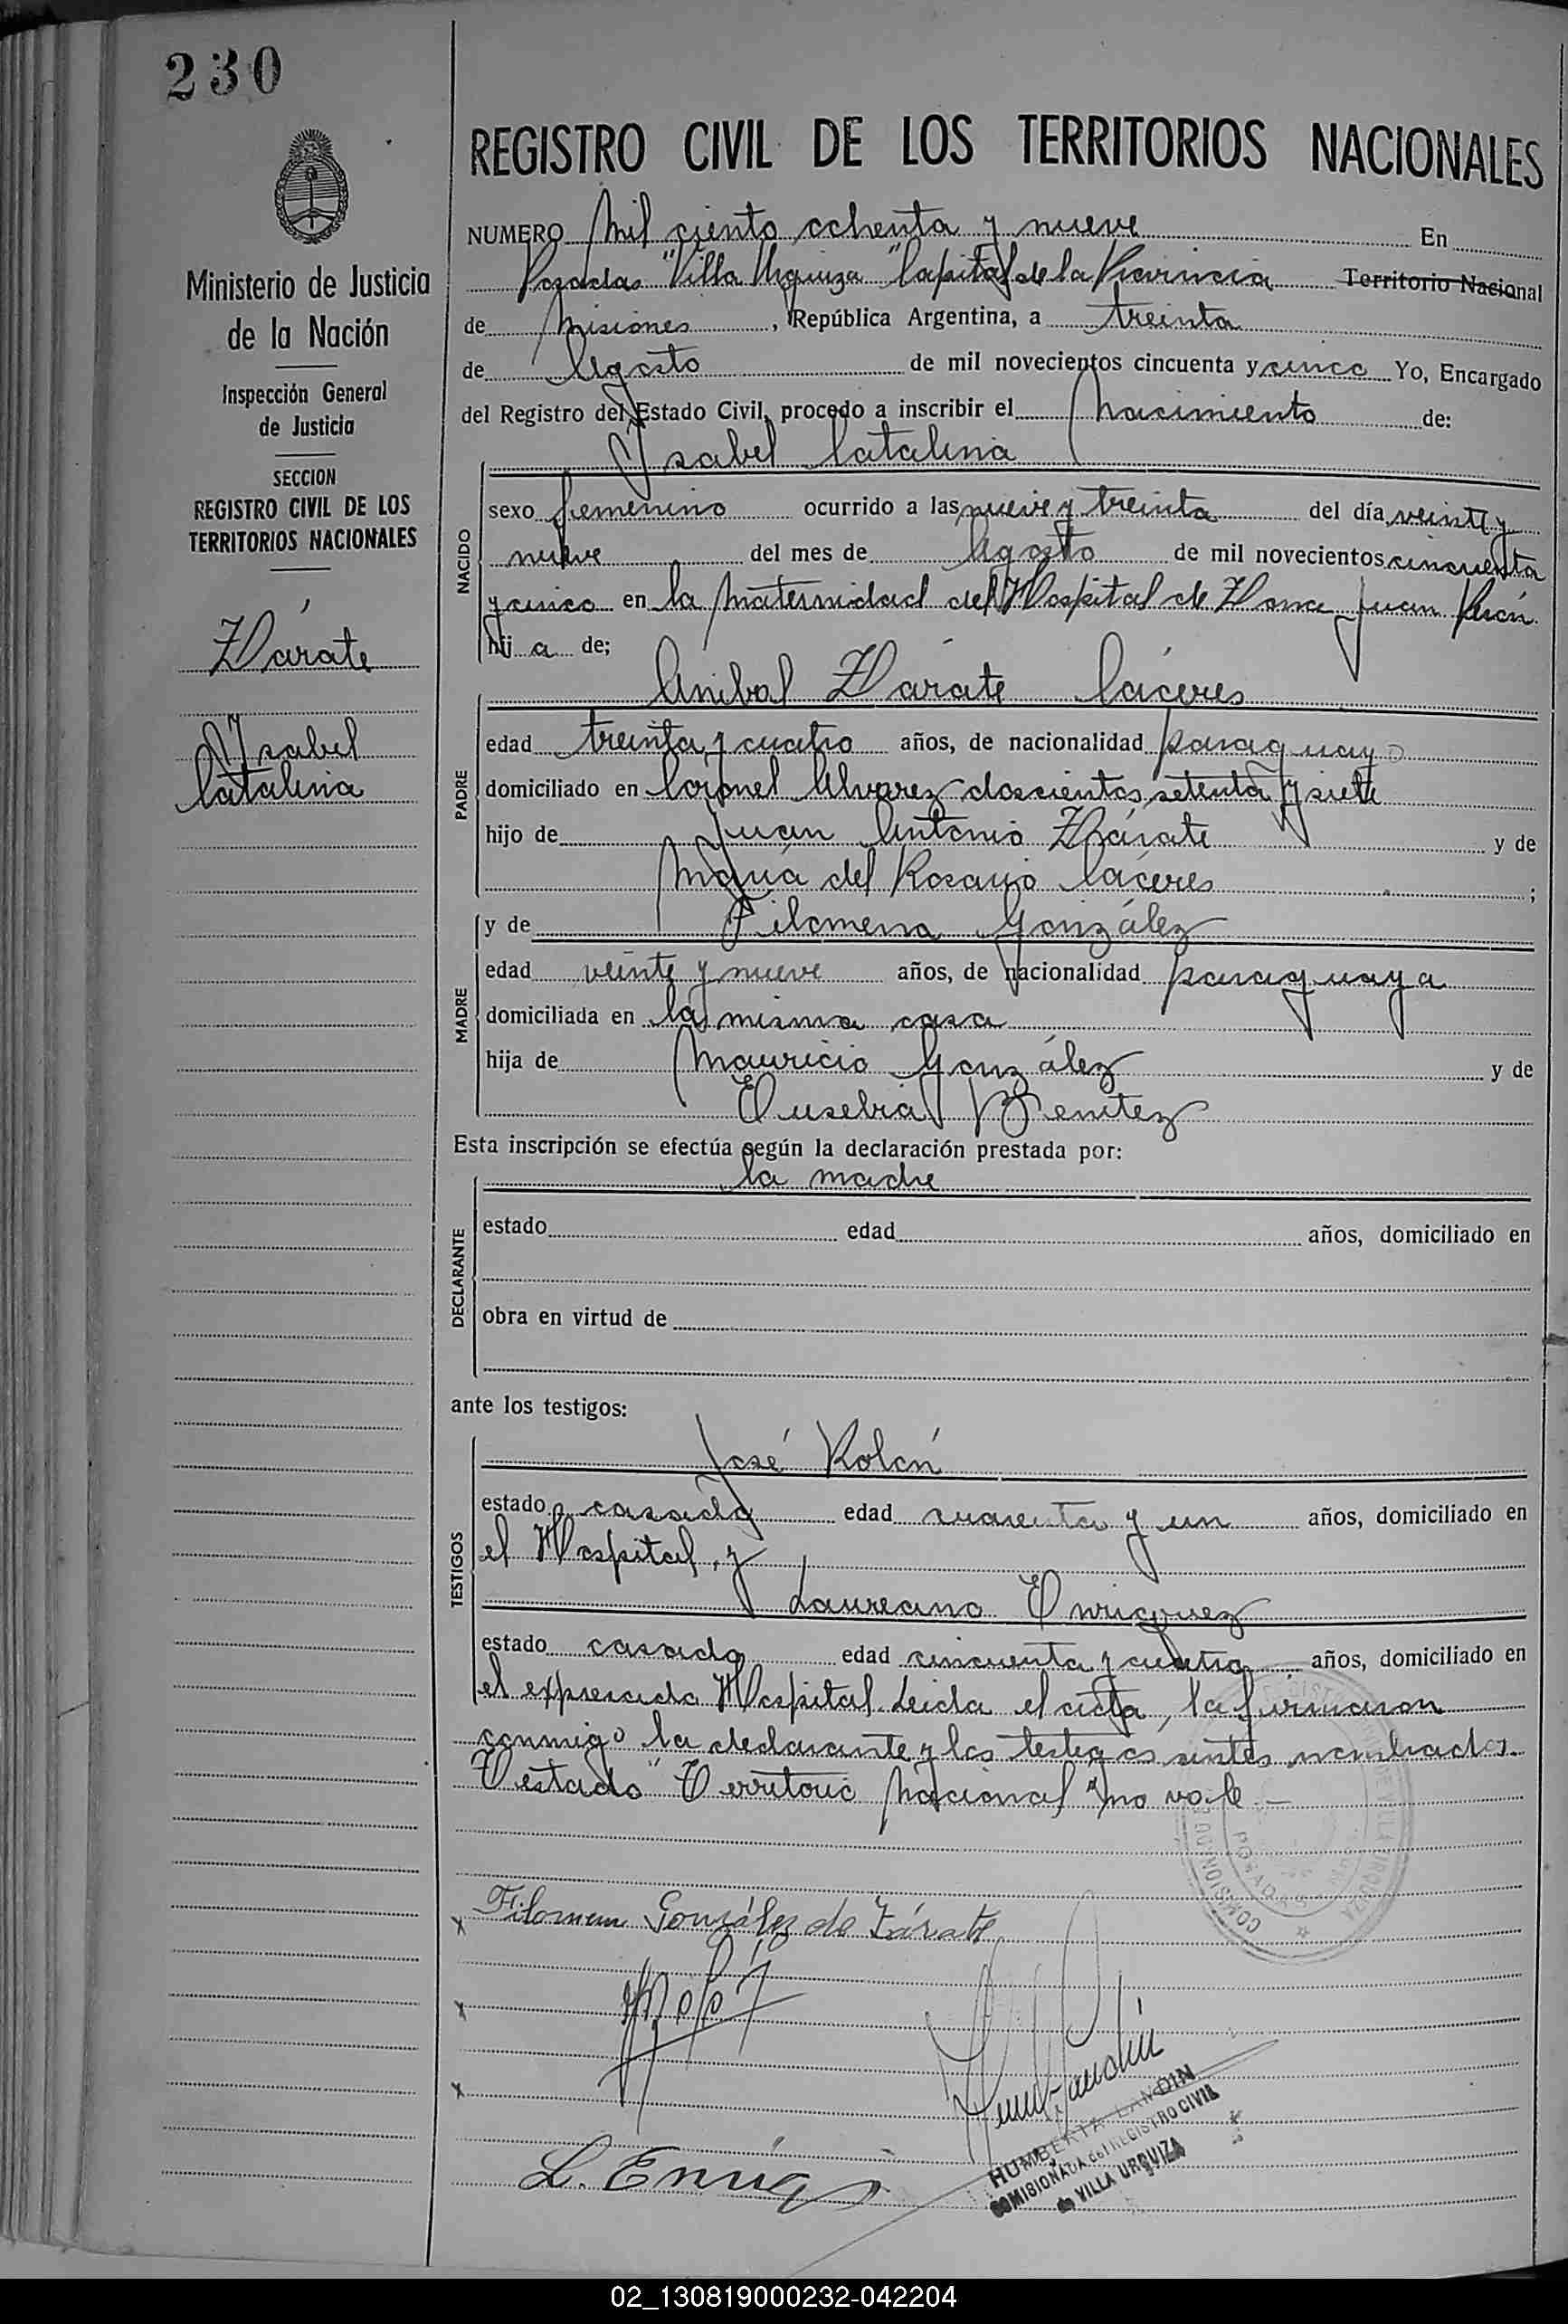 230
REGISTRO CIVIL DE LOS TERRITORIOS NACIONALES
Ministerio de Justicia
de la Nación
Inspección General
de Justicia
SECCION
REGISTRO CIVIL DE LOS
TERRITORIOS NACIONALES
Zárate
Ysabel
Catalina
NUMERO Mil ciento ochenta y nueve En
Posadas "Villa Urquiza" Capital de la Provincia Territorio Nacional
de Misiones, República Argentina, a treinta
de Agosto de mil novecientos cincuenta y cinco Yo, Encargado
del Registro del Estado Civil, procedo a inscribir el Nacimiento de:
Ysabel Catalina
NACIDO
sexo femenino ocurrido a las nueve y treinta del día veinte y
nueve del mes de Agosto de mil novecientos cincuenta
y cinco en la Maternidad del Hospital de Zona Juan Perón
hij a de;
Anibal Zárate Cáceres
PADRE
edad treinta y cuatro años, de nacionalidad paraguayo
domiciliado en Coronel Alvarez doscientos setenta y siete
hijo de Juan Antonio Zárate y de
María del Rosario Cáceres ;
y de Filomena González
MADRE
edad veinte y nueve años, de nacionalidad paraguaya
domiciliada en la misma casa
hija de Mauricio González y de
Eusebia Benitez
Esta inscripción se efectúa según la declaración prestada por:
la madre
DECLARANTE
estado edad años, domiciliado en
obra en virtud de
ante los testigos:
José Rolón
TESTIGOS
estado casado edad cuarenta y un años, domiciliado en
el Hospital, y
Laureano Enriquez
estado casado edad cincuenta y cuatro años, domiciliado en
el expresado Hospital. Leida el acta, la firmaron
conmigo la declarante y los testigos antes nombrados.
Testado "Territorio Nacional" no vale.-
COMISIONADO DE VILLA URQUIZA
POSADAS
x Filomena González de Zárate
x
x
L. Enriq
HUMBERTA LANDIN
COMISIONADA del REGISTRO CIVIL
de VILLA URQUIZA
02_130819000232-042204